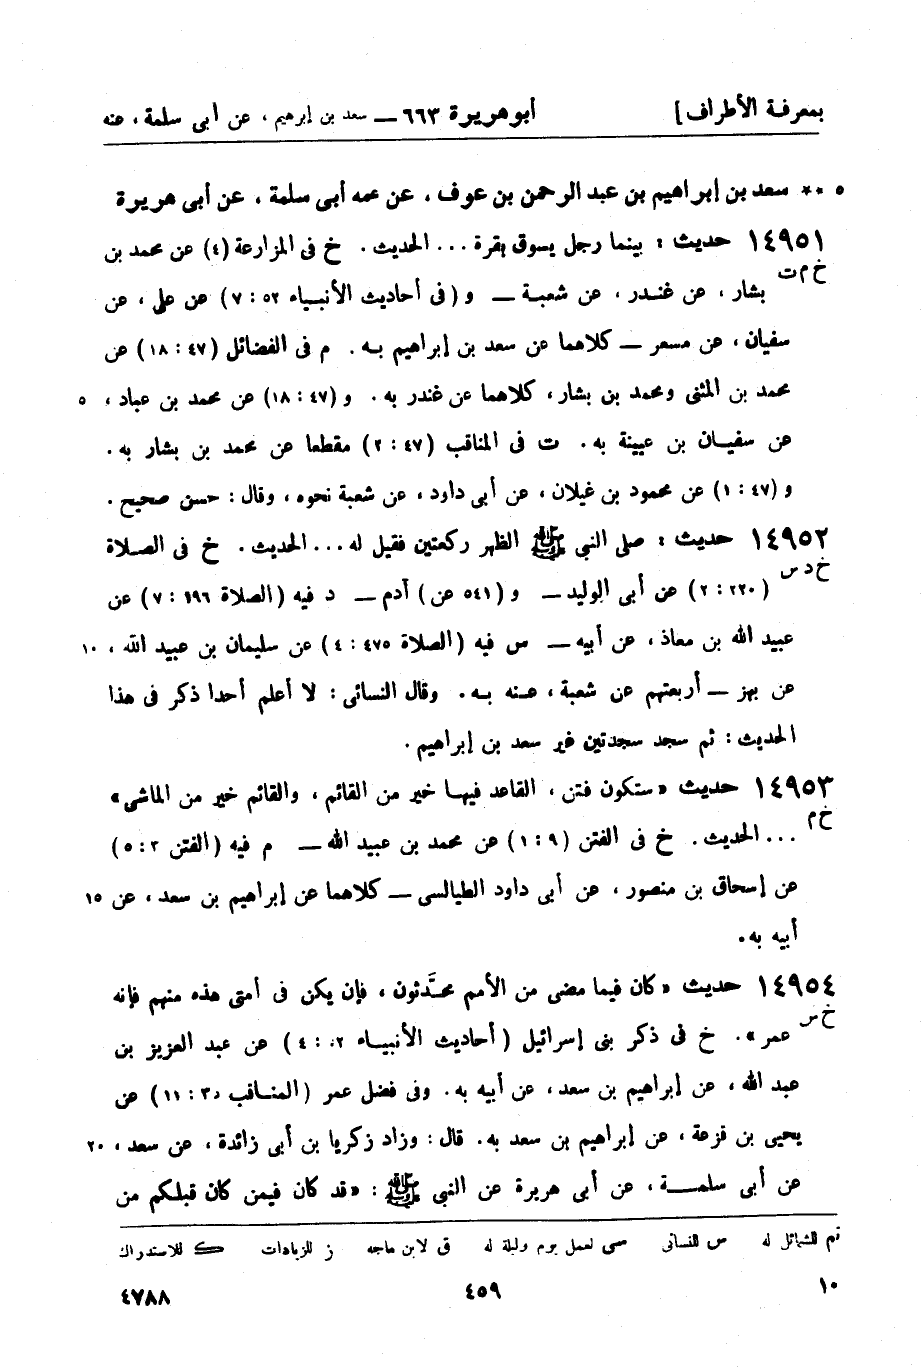 بمعرفة الأطراف] أبوهريرة ٦٦٣ — سعد بن إبرهيم ، عن أبى سلمة ، عنه
٥ ** سعد بن إبراهيم بن عبد الرحمن بن عوف ، عن عمه أبى سلمة ، عن أبى هريرة
١٤٩٥١ حديث : بينما رجل يسوق بقرة ... الحديث . خ فى المزارعة (٤) عن محمد بن
خ م ت بشار ، عن غندر ، عن شعبة — و (فى أحاديث الأنبياء ٥٢ : ٧) عن على ، عن
سفيان ، عن مسعر — كلاهما عن سعد بن إبراهيم به . م فى الفضائل (٤٧ : ١٨) عن
محمد بن المثنى ومحمد بن بشار ، كلاهما عن غندر به . و (٤٧ : ١٨) عن محمد بن عباد ، ٥
عن سفيان بن عيينة به . ت فى المناقب (٤٧ : ٢) مقطعا عن محمد بن بشار به .
و (٤٧ : ١) عن محمود بن غيلان ، عن أبى داود ، عن شعبة نحوه ، وقال : حسن صحيح .
١٤٩٥٢ حديث : صلى النبى ﷺ الظهر ركعتين فقيل له ... الحديث . خ فى الصلاة
خ د س (٢٢٠ : ٢) عن أبى الوليد — و (٥٤١ عن) آدم — د فيه (الصلاة ١٩٦ : ٧) عن
عبيد الله بن معاذ ، عن أبيه — س فيه (الصلاة ٤٧٥ : ٤) عن سليمان بن عبيد الله ، ١٠
عن بهز — أربعتهم عن شعبة ، عنه به . وقال النسائى : لا أعلم أحدا ذكر فى هذا
الحديث : ثم سجد سجدتين غير سعد بن إبراهيم .
١٤٩٥٣ حديث «ستكون فتن ، القاعد فيها خير من القائم ، والقائم خير من الماشى»
خ م ... الحديث . خ فى الفتن (٩ : ١) عن محمد بن عبيد الله — م فيه (الفتن ٣ : ٥)
عن إسحاق بن منصور ، عن أبى داود الطيالسى — كلاهما عن إبراهيم بن سعد ، عن ١٥
أبيه به .
١٤٩٥٤ حديث «كان فيما مضى من الأمم محدَّثون ، فإن يكن فى أمتى هذه منهم فإنه
خ س عمر» . خ فى ذكر بنى إسرائيل (أحاديث الأنبياء : ٤) عن عبد العزيز بن
عبد الله ، عن إبراهيم بن سعد ، عن أبيه به . وفى فضل عمر (المناقب : ١١) عن
يحيى بن قزعة ، عن إبراهيم بن سعد به . قال : وزاد زكريا بن أبى زائدة ، عن سعد ، ٢٠
عن أبى سلمة ، عن أبى هريرة عن النبى ﷺ : «قد كان فيمن كان قبلكم من
تم للشمائل له س للنسائى سى لعمل يوم وليلة له ق لابن ماجه ز للزيادات ك للاستدراك
١٠ ٤٥٩ ٤٧٨٨